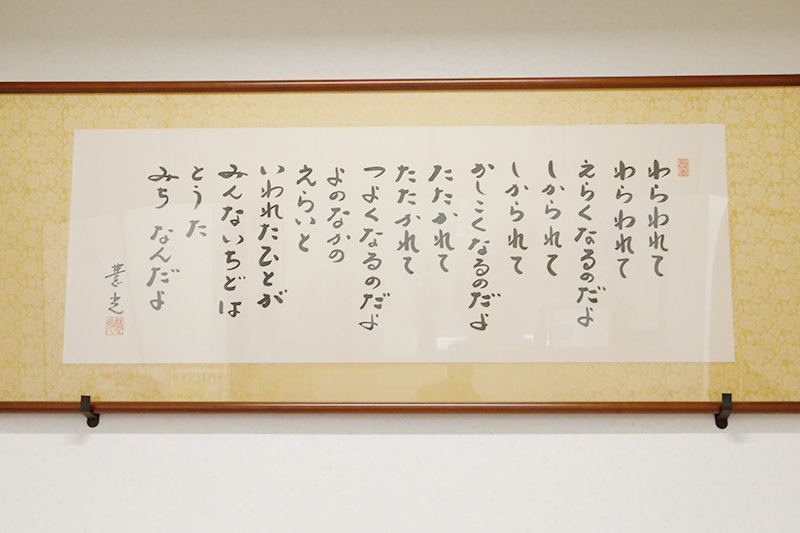 わらわれて
わらわれて
えらくなるのだよ
しかられて
しかられて
かしこくなるのだよ
たたかれて
たたかれて
つよくなるのだよ
えらいと
よのなかの
いわれたひとが
みんないちどは
とうた
みち なんだよ